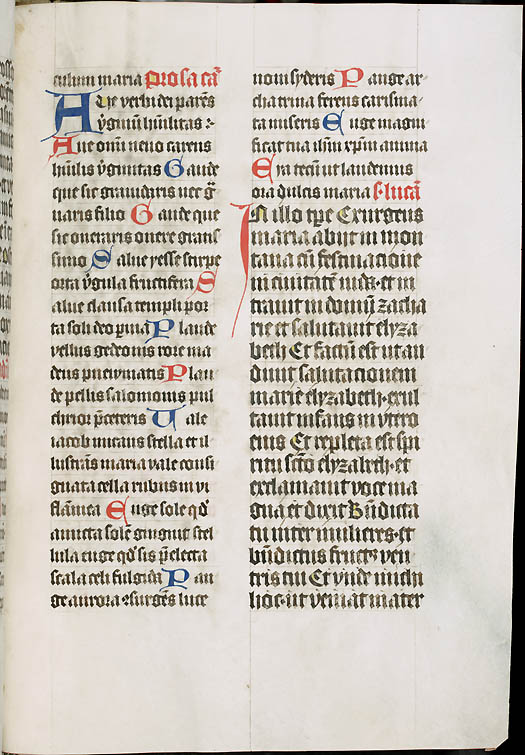 culum maria Prosa ca̅
AVe verbi dei parēs
v̓ginū hūilitas
Aue om̄i neuo carens
hūilis v̓ginitas Gaude
que sic grauidaris nec g̓
uaris filio Gaude que
sic oneraris onere gratis
simo Salue yesse stirpe
orta v̓gula fructifera S
alue clausa templi por
ta soli deo ꝑuia Plaude
vellus gedeonis rore ma
dens pneumatis Plau
de pellis salomonis pul
chrior p̄ceteris Uale
iacob micans stella et il
lustrās maria vale consi
gnata cella rubus in vi
flāmea Euge sole qd̓
amicta solē gingnit stel
lula euge qd̓ sis p̄electa
scala celi fulgida Pan
ge aurora ꝯsurgēs luce
noui syderis Pange ar
cha trina ferens carisma
ta miseris Euge magni
ficat tua ih̄m xp̄m anima
Eya tecū ut laudemus
o͞ia dulcis maria s. lucā
IN illo tp̄e Exurgens
maria abijt in mon
tana cū festinacione
in ciuitatē iude · et in
trauit in domū zacha
rie et salutauit elyza
beth Et factū est ut au
diuit salutacionem
marie elyzabeth · exul
tauit infans in vtero
eius Et repleta est spi
ritu scō elyzabeth · et
exclamauit voce ma
gna et dixit Bn̄dicta
tu inter mulieres · et
bn̄dictus fructꝰ ven
tris tui Et vnde michi
hoc · ut veniat mater